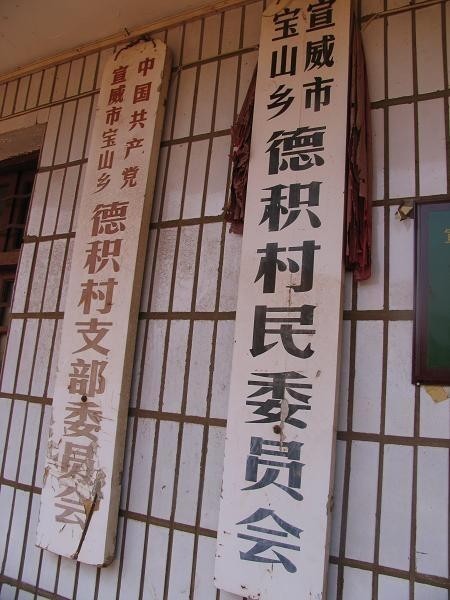 中国共产党
宣威市宝山乡
德积村支部委员会
宣威市
宝山乡
德积村民委员会